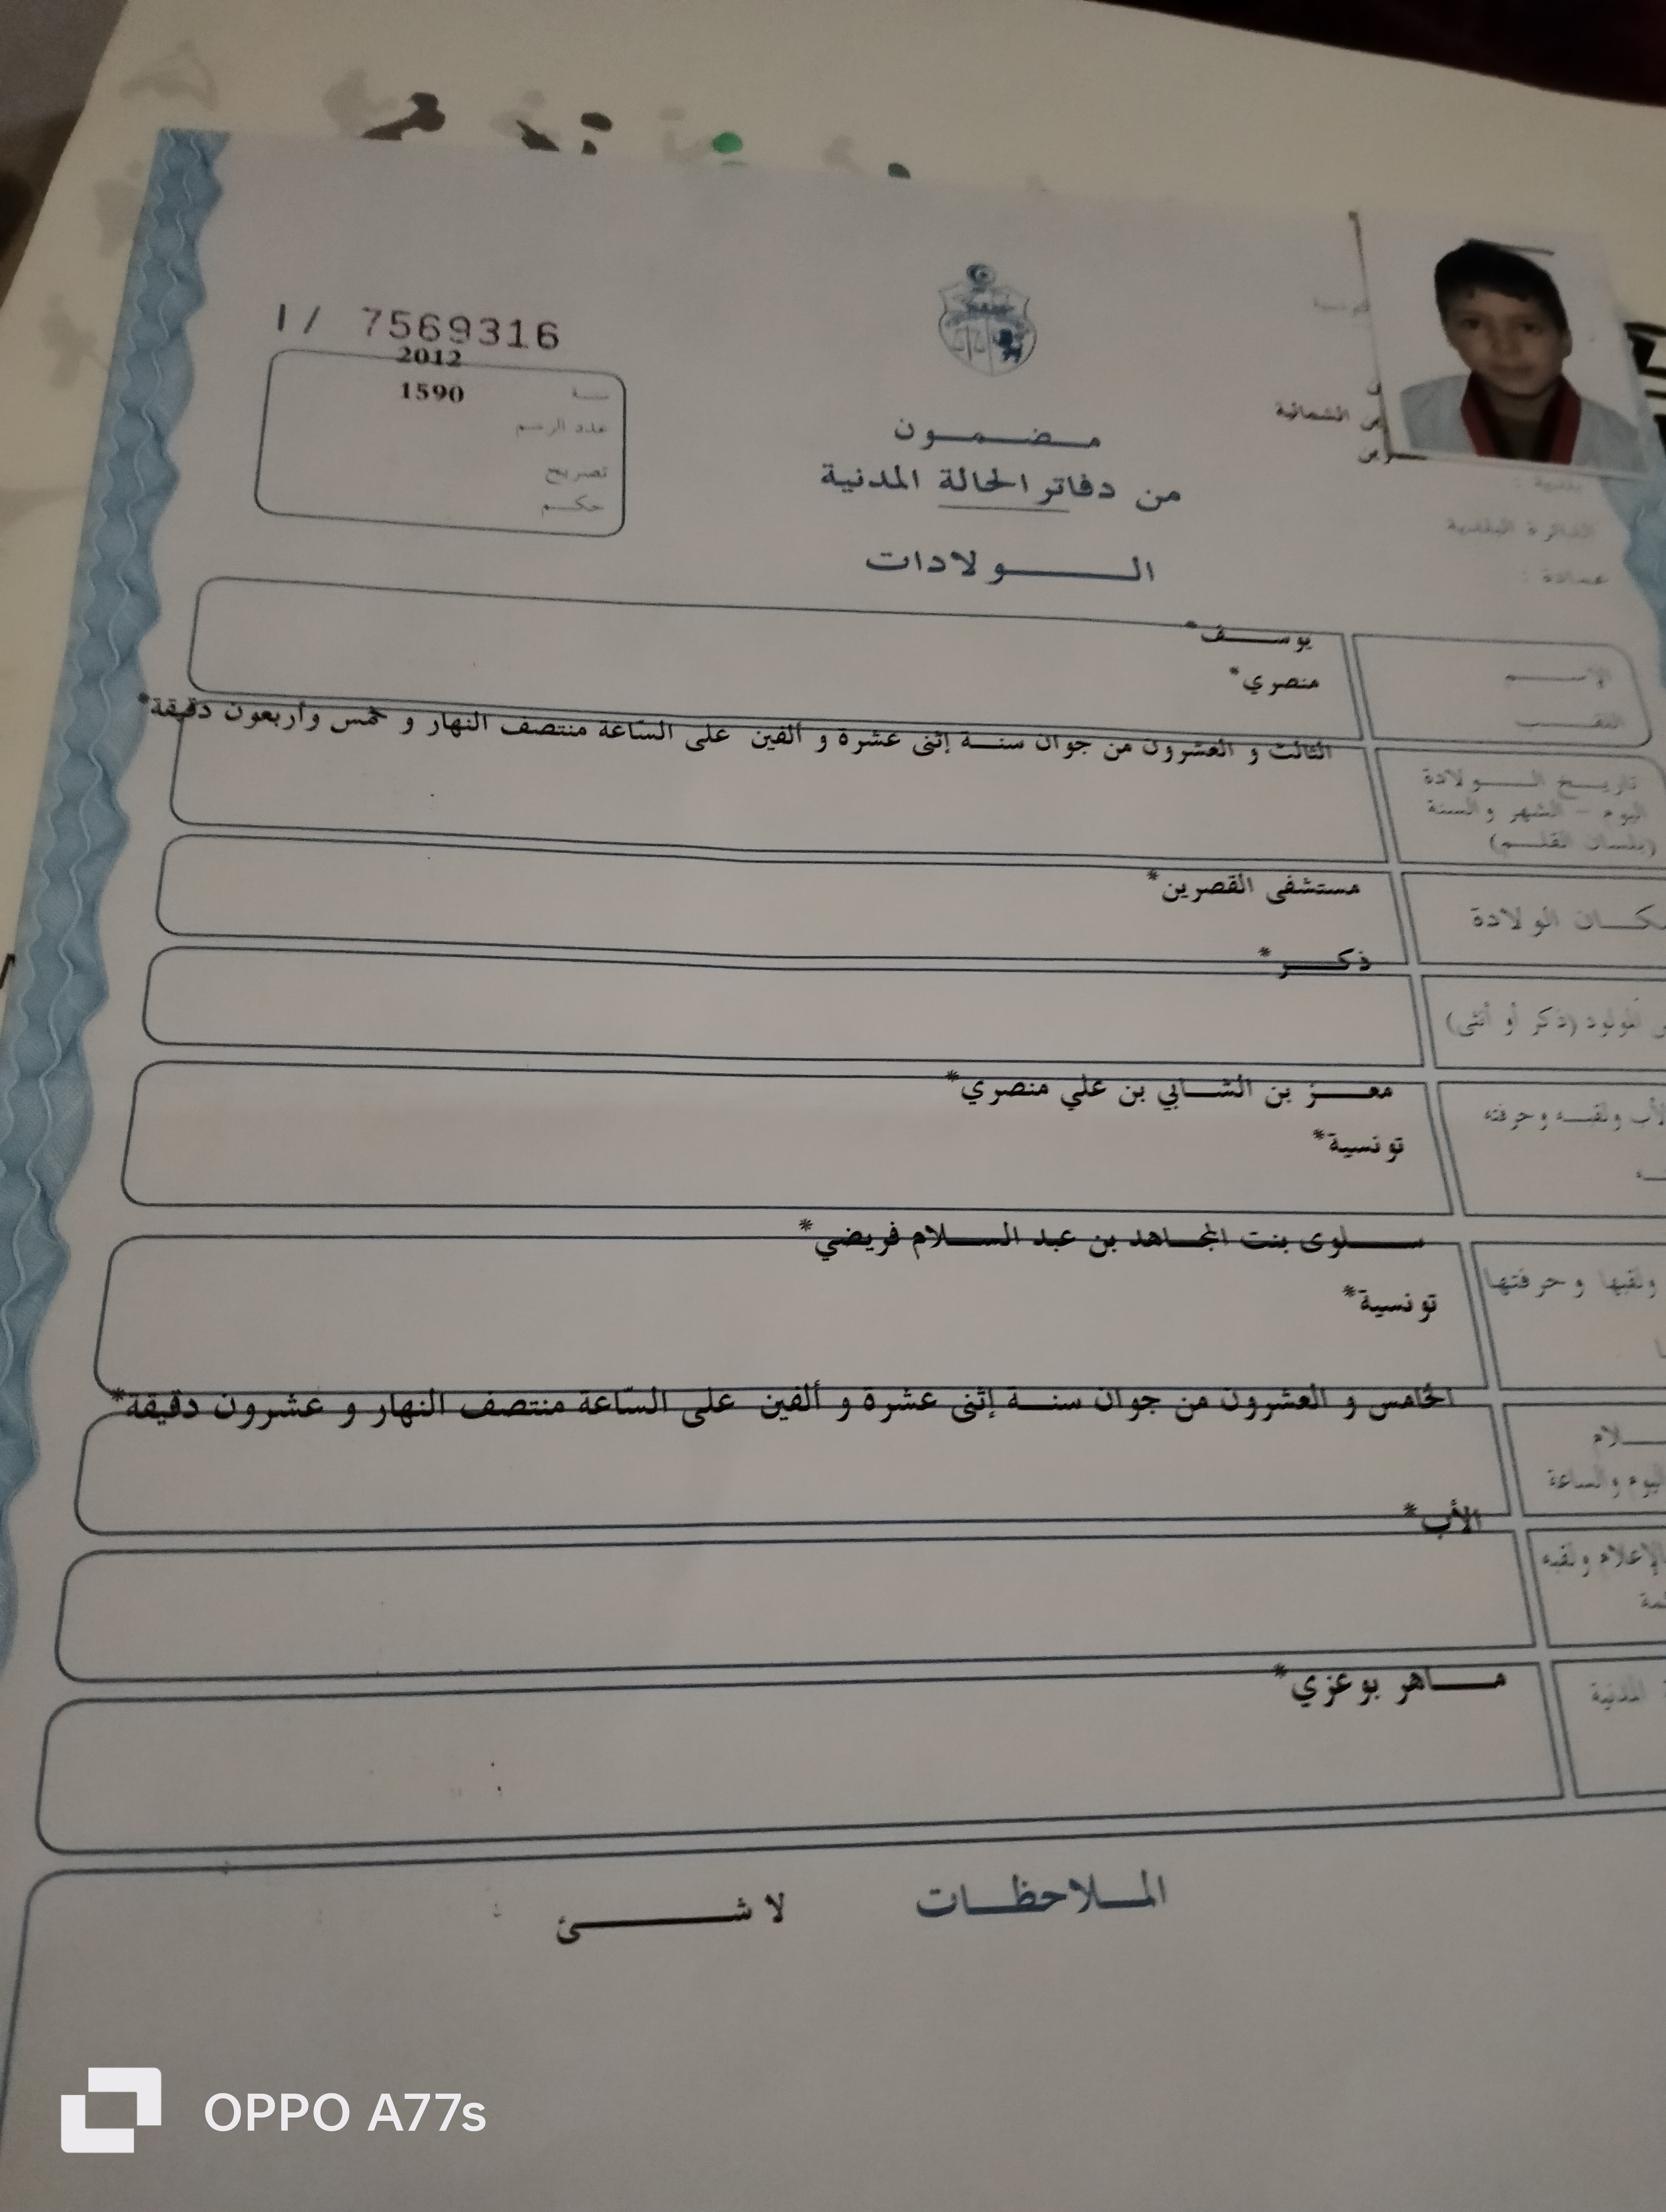 I/ 7569316
2012
سنة 1590
عدد الرسم
تصريح
حكم
مضمون
من دفاتر الحالة المدنية
الولادات
الشمالية
بلدية :
الدائرة البلدية
عمادة :
الاسم يوسف*
اللقب منصري*
تاريخ الولادة
اليوم - الشهر والسنة
(بلسان القلم)
الثالث و العشرون من جوان سنة إثنى عشرة و ألفين على السّاعة منتصف النهار و خمس وأربعون دقيقة*
مكان الولادة مستشفى القصرين*
المولود (ذكر أو أنثى) ذكر*
ولقبه وحرفته معز بن الشابي بن علي منصري*
تونسية*
ولقبها وحرفتها سلوى بنت المجاهد بن عبد السلام فريضي*
تونسية*
اليوم والساعة الخامس و العشرون من جوان سنة إثنى عشرة و ألفين على السّاعة منتصف النهار و عشرون دقيقة*
بالإعلام ولقبه الأب*
المدنية ماهر بوعزي*
الملاحظات لا شئ
OPPO A77s